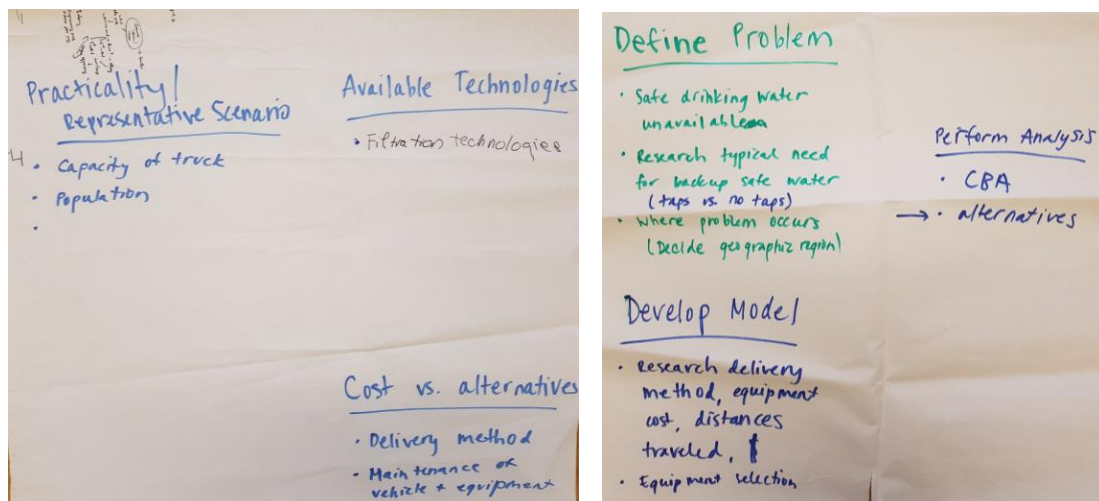 Practicality /
Representative Scenario
• Capacity of truck
• Population
•
Available Technologies
• Filtration technologies
Cost vs. alternatives
• Delivery method
• Maintenance of
vehicle + equipment
Define Problem
• Safe drinking water
unavailable
• Research typical need
for backup safe water
(taps vs. no taps)
• Where problem occurs
(Decide geographic region)
Perform Analysis
• CBA
→ • alternatives
Develop Model
• Research delivery
method, equipment
cost, distances
traveled,
• Equipment selection